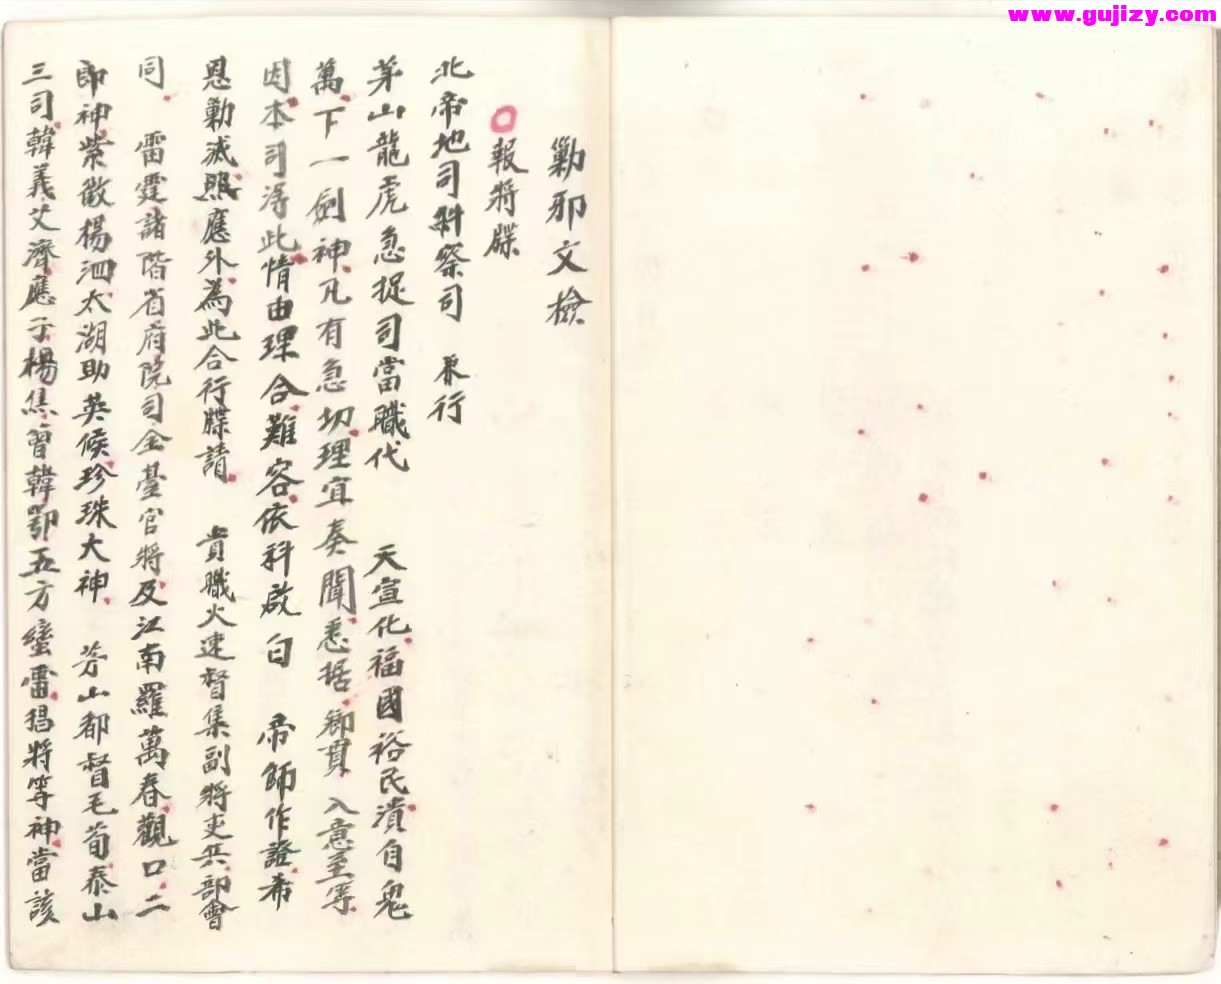 www.gujizy.com
勦邪文檢
報將牒
北帝地司糾察司 承行
茅山龍虎急捉司當職代 天宣化福國裕民瀆自鬼
萬下一劍神凡有急切理宜奏聞悉据鄉貫 入意至等
因本司淂此情由理合難容依科啟白 帝師作證希
恩勦滅照應外為此合行牒請 貴職火速督集副將吏兵部會
同 雷霆諸階省府院司金臺官將及江南羅萬春觀口二
郎神紫微楊泗太湖助英候珍珠大神 芳山都督毛荀泰山
三司韓義艾濟應子楊焦曾韓鄂五方蠻雷猖將等神當該